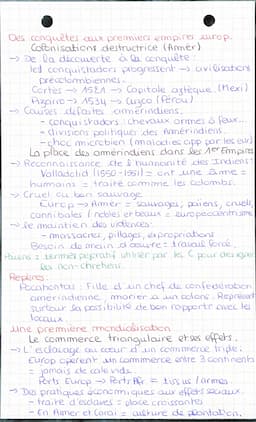 Des conquêtes aux premiers empires europ.
Colonisations destructrice (Amér)
→ De la découverte à la conquête :
les conquistadors progressent → civilisations
précolombiennes.
Cortés → 1521 → Capitale aztèque (Mexi)
Pizarro → 1534 → Cuzco (Pérou)
→ Causes défaites amérindiens :
- conquistadors : chevaux, armes à feux...
- divisions politiques des Amérindiens
- choc microbien (maladies app par les eur)
La place des amérindiens dans les 1er Empires
→ Reconnaissance de l'humanité des Indiens :
Valladolid (1550-1551) = ont une âme =
humains = traité comme les colombs.
→ Cruel ou bon sauvage
Europ → Amér = sauvages, païens, cruels,
cannibales / nobles et beaux = européocentrisme
→ le maintien des violences :
- massacres, pillages, expropriations
Besoin de main d'œuvre = travail forcé,
païens = termes péjoratif utiliser par les C pour désigner
les non-chrétiens.
Repères :
Pocahontas : Fille d'un chef de confédération
amérindienne, marier a un colons. Représent
surtout la possibilité de bon rapport avec les
locaux.
Une première mondialisation
Le commerce triangulaire et ses effets.
→ L'esclavage au cœur d'un commerce triple :
Europ opèrent un commerce entre 3 continents
= jamais de cale vide.
Ports Europ → Ports Afr = tissus / armes.
→ Des pratiques économiques aux effets sociaux.
- traite d'esclaves = place croissante
- En Amer et Caraï = culture de plantation.